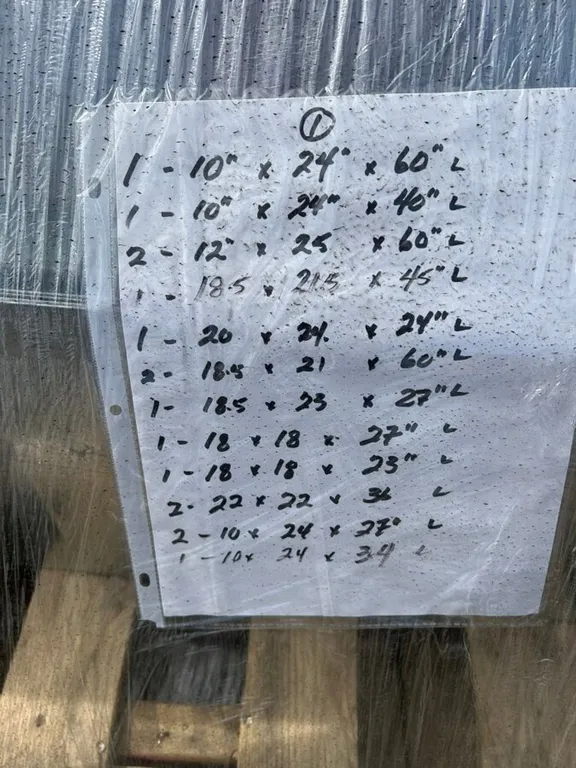 1
1 - 10" x 24" x 60" L
1 - 10" x 24" x 40" L
2 - 12" x 25 x 60" L
1 - 18.5 x 21.5 x 45" L
1 - 20 x 24. x 24" L
2 - 18.5 x 21 x 60" L
1 - 18.5 x 23 x 27" L
1 - 18 x 18 x 27" L
1 - 18 x 18 x 23" L
2 - 22 x 22 x 36 L
2 - 10 x 24 x 27" L
1 - 10 x 24 x 34 L